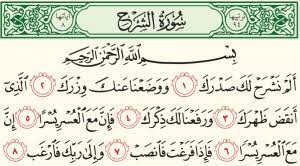 ترتيبها ٩٤ سُورَةُ الشَّرْحِ آياتها ٨
بِسْمِ اللَّهِ الرَّحْمَٰنِ الرَّحِيمِ
أَلَمْ نَشْرَحْ لَكَ صَدْرَكَ ١ وَوَضَعْنَا عَنكَ وِزْرَكَ ٢ الَّذِي
أَنقَضَ ظَهْرَكَ ٣ وَرَفَعْنَا لَكَ ذِكْرَكَ ٤ فَإِنَّ مَعَ الْعُسْرِ يُسْرًا ٥ إِنَّ
مَعَ الْعُسْرِ يُسْرًا ٦ فَإِذَا فَرَغْتَ فَانصَبْ ٧ وَإِلَىٰ رَبِّكَ فَارْغَب ٨